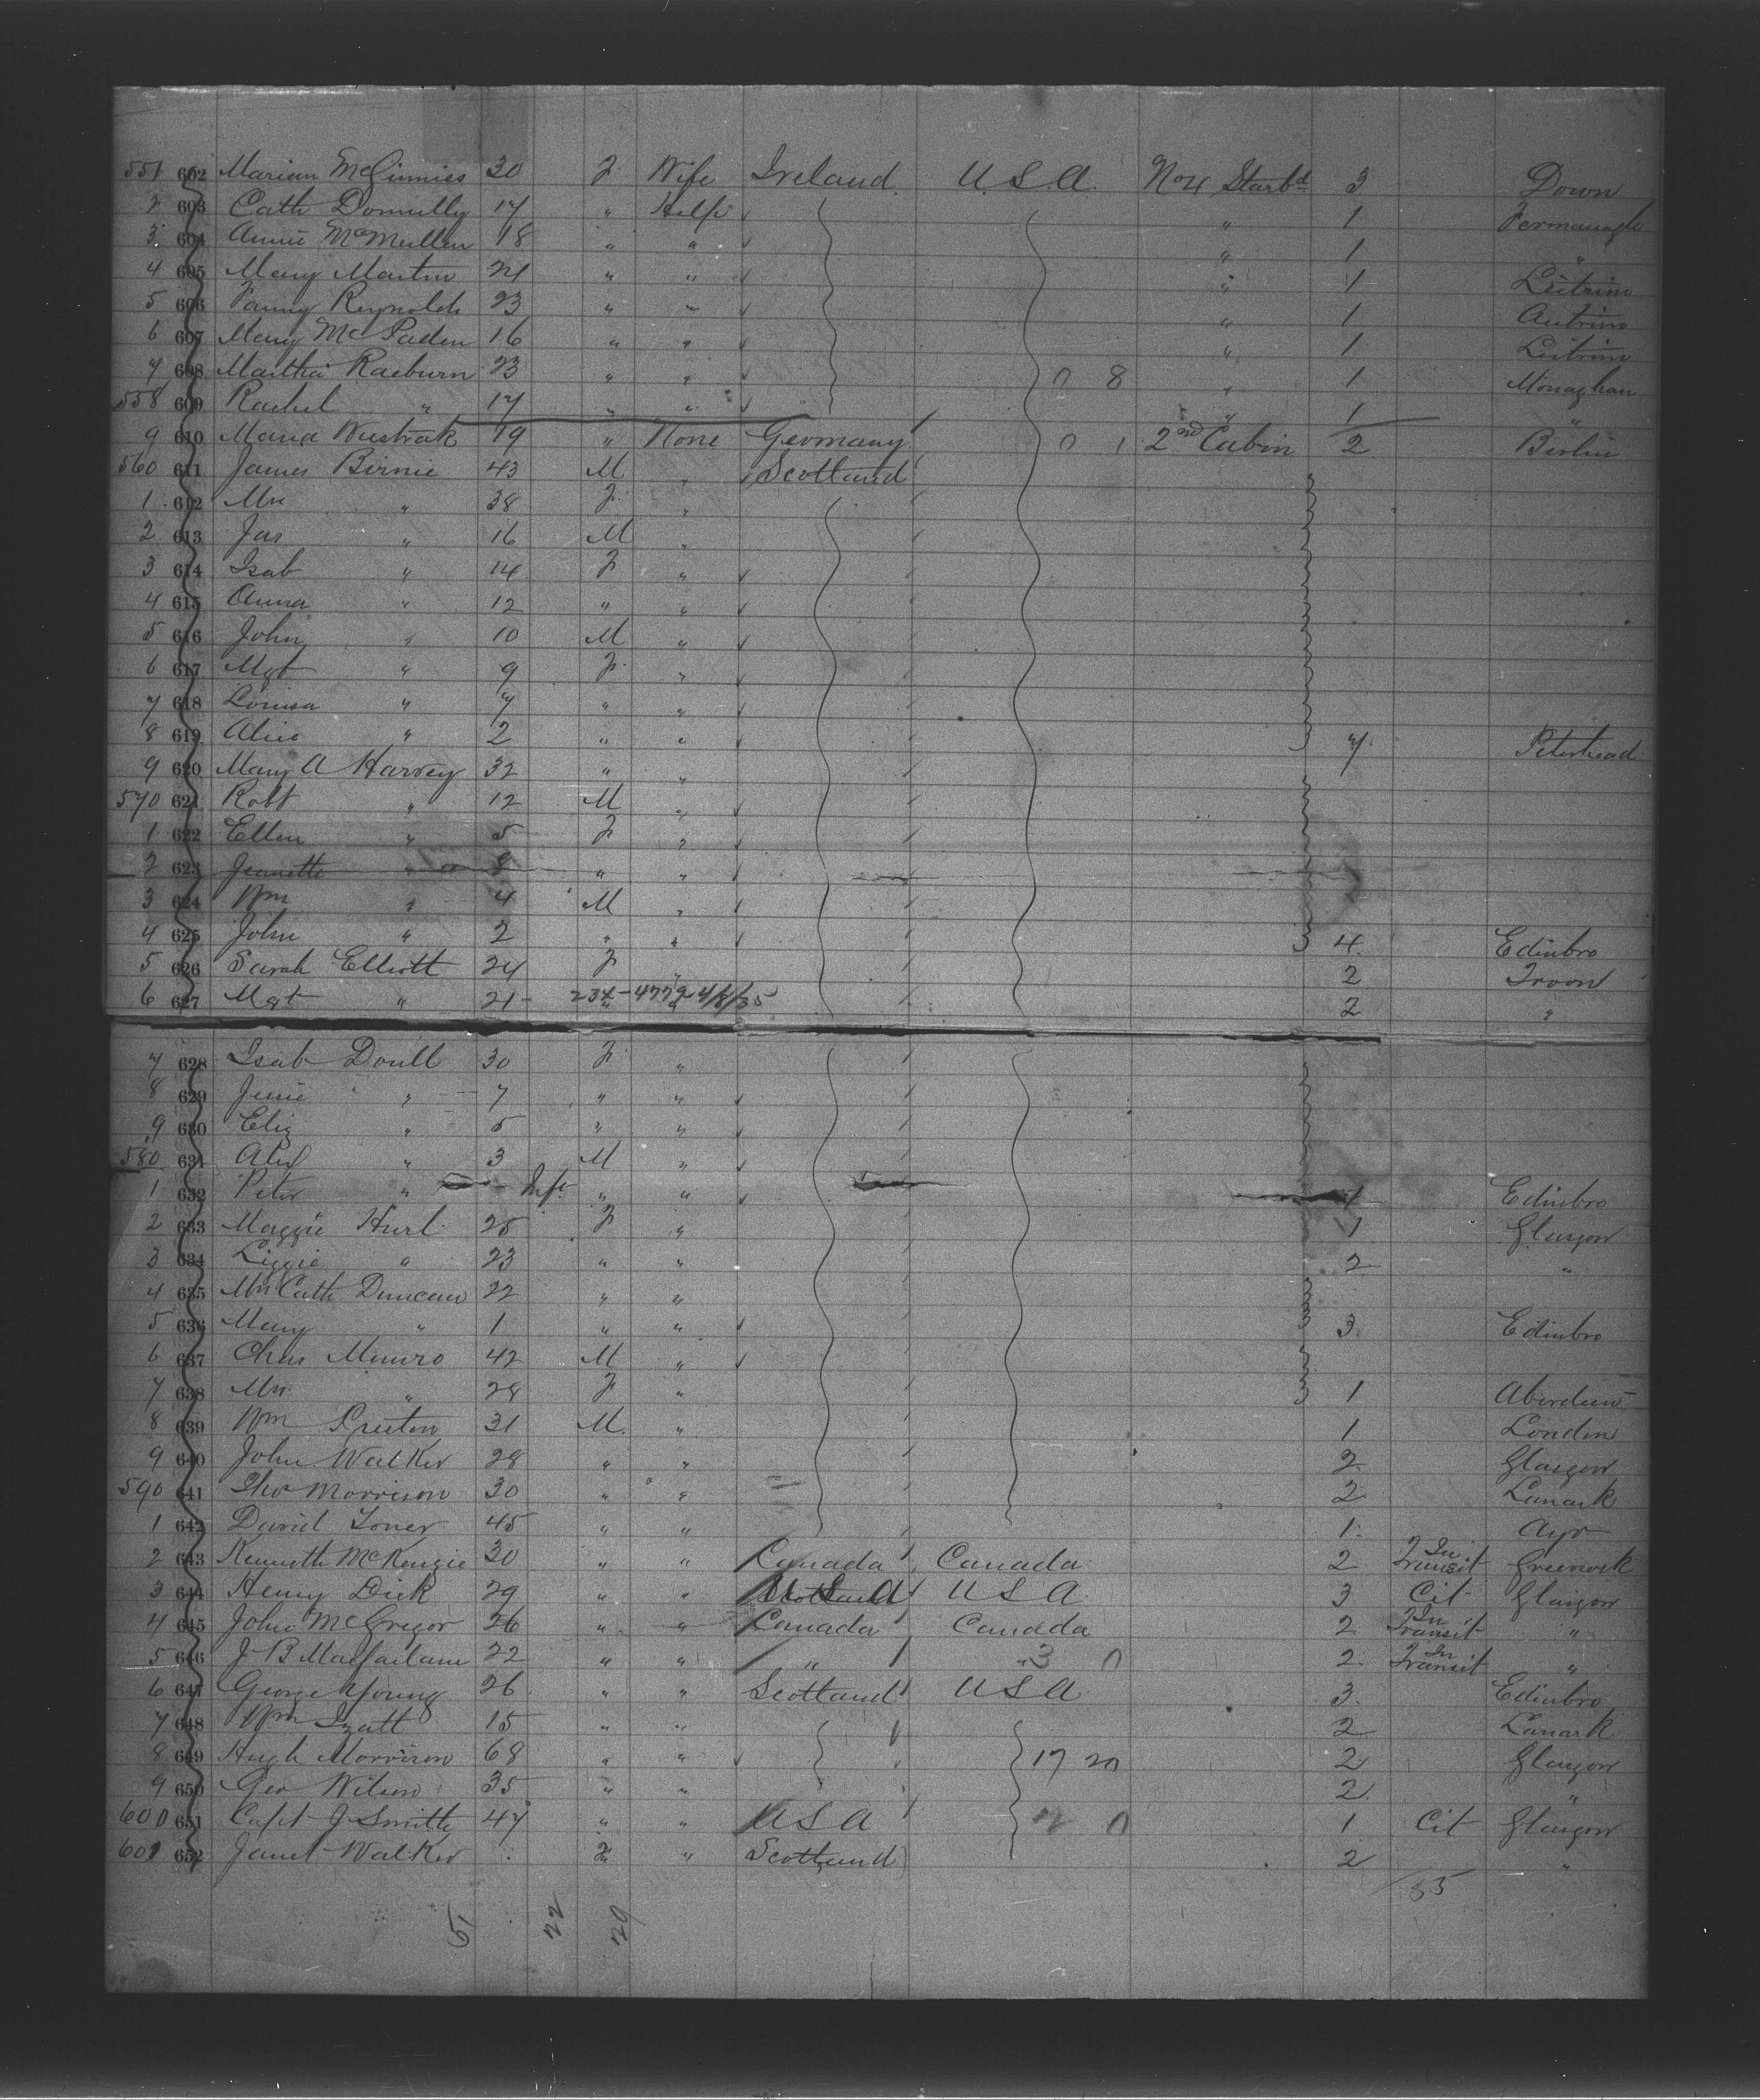 551 602 Marian McGinniss 30 F Wife Ireland. U.S.A. No 4 Starbd 3 Down
2 603 Cath Donnelly 17 " Help " 1 Fermanagh
3 604 Annie McMullen 18 " " " 1 "
4 605 Mary Martin 21 " " " 1 Leitrim
5 606 Fanny Reynolds 23 " " " 1 Antrim
6 607 Mary McPaden 16 " " " 1 Leitrim
7 608 Martha Raeburn 23 " " 0 8 " 1 Monaghan
558 609 Rachel " 17 " " " 1 "
9 610 Maria 19 " None Germany 0 1 2nd Cabin 2 Berlin
560 611 James Birnie 43 M " Scotland
1 612 Mrs " 38 F "
2 613 Jas " 16 M "
3 614 Isab " 14 F "
4 615 Anna " 12 " "
5 616 John " 10 M "
6 617 Mgt " 9 F "
7 618 Louisa " 7 " "
8 619 Alice " 2 " " 7 Peterhead
9 620 Mary A Harvey 32 " "
570 621 Robt " 12 M "
1 622 Ellen " 5 F "
2 623 Jeanette " " "
3 624 Wm " 4 M "
4 625 John " 2 " " 4 Edinbro
5 626 Sarah Elliott 24 F " 2 Troon
6 627 Mgt " 21 " " 234-4772 4/8/35 2 "
7 628 Isab Doull 30 F "
8 629 Jessie " 7 " "
9 630 Eliz " 5 " "
580 631 Alex " 3 M "
1 632 Peter " Inft " " 1 Edinbro
2 633 Maggie Hurl 25 F " 1 Glasgow
3 634 Lizzie " 23 " " 2 "
4 635 Mrs Cath Duncan 22 " "
5 636 Mary " 1 " " 3 Edinbro
6 637 Chas Munro 42 M "
7 638 Mrs " 28 F " 1 Aberdeen
8 639 Wm 31 M " 1 London
9 640 John Walker 28 " " 2 Glasgow
590 641 Thos Morrison 30 " " 2 Lanark
1 642 David Toner 45 " " 1 Ayr
2 643 Kenneth McKenzie 30 " " Canada Canada 2 In Transit Greenock
3 644 Henry Dick 29 " " U S A U S A 3 Cit Glasgow
4 645 John McGregor 26 " " Canada Canada 2 In Transit "
5 646 J B Macfarlane 22 " " " " 3 0 2 In Transit "
6 647 George Young 26 " " Scotland U S A 3 Edinbro
7 648 Wm Izatt 15 " " 2 Lanark
8 649 Hugh Morrison 68 " " 17 20 2 Glasgow
9 650 Geo Wilson 35 " " 2 "
600 651 Capt J Smith 47 " " U S A 2 0 1 Cit Glasgow
601 652 Janet Walker F " Scotland 2 "
51 22 29 55